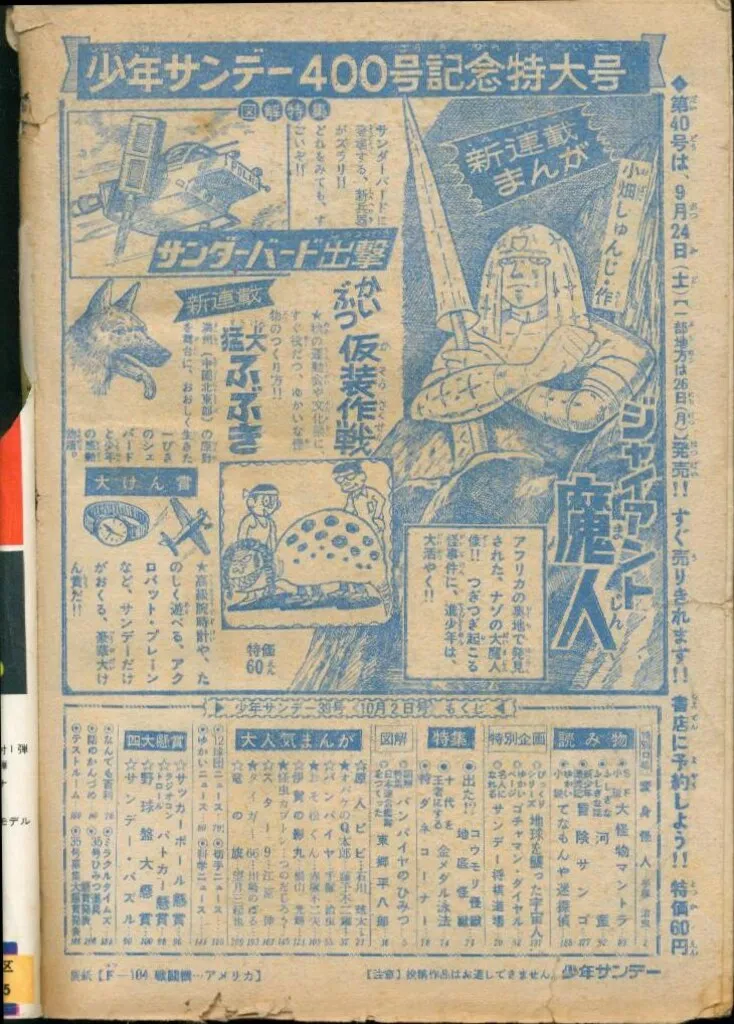 少年サンデー400号記念特大号
◆第40号は、9月24日(土)【一部地方は26日(月)】発売!!すぐ売りきれます!!書店に予約しよう!!特価60円
新連載
まんが
小畑しゅんじ・作
ジャイアント
魔人
アフリカの奥地で発見
された、ナゾの大魔人
像!! つぎつぎ起こる
怪事件に、進少年は、
大活やく!!
図解特集
サンダーバードに
登場する、新兵器
がズラリ!!
どれをみても、す
ごいぞ!!
サンダーバード出撃
POLICE
かい
ぶつ
仮装作戦
★秋の運動会や文化祭に、
すぐ役だつ、ゆかいな怪
物のつくり方!!
新連載
猛犬ふぶき
満州(中国北東部)の原野
を舞台に、おおしく生きた
一ぴき
のシェ
パード
と少年
の感動
物語。
大けん賞
★高級腕時計や、た
のしく遊べる、アク
ロバット・プレーン
など、サンデーだけ
がおくる、豪華大け
ん賞だ!!
特価
60円
少年サンデー39号〈10月2日号〉もくじ
変身怪人
読み物
大怪物マントラ
冒険サンゴ
てなもんや迷探偵
特別企画
びっくり
シリーズ
地球を襲った宇宙人
ゴチャマン・ダイヤル
名人に
なれる
サンデー将棋道場
特集
出た!!コウモリ怪獣
地底怪獣
十代を
王者にする
金メダル泳法
特ダネコーナー
図解
バンパイヤのひみつ
日本連合艦隊
をつくった
東郷平八郎
大人気まんが
★原人ビビ
★オバケのQ太郎
★バンパイヤ
★おそ松くん
★伊賀の影丸
★怪虫カブトン
★スター9
★タイガー66
★竜の旗
●12球団ニュース
●切手ニュース
●ゆかいニュース
●科学ニュース
四大懸賞
☆サッカーボール懸賞
パトカー懸賞
☆野球盤大懸賞
☆サンデー・パズル
●なんでも百科
●ミラクルタイムズ
●頭のかんづめ
●テストルーム
表紙【F-104 戦闘機…アメリカ】
【注意】投稿作品はお返しできません。
少年サンデー
モデル